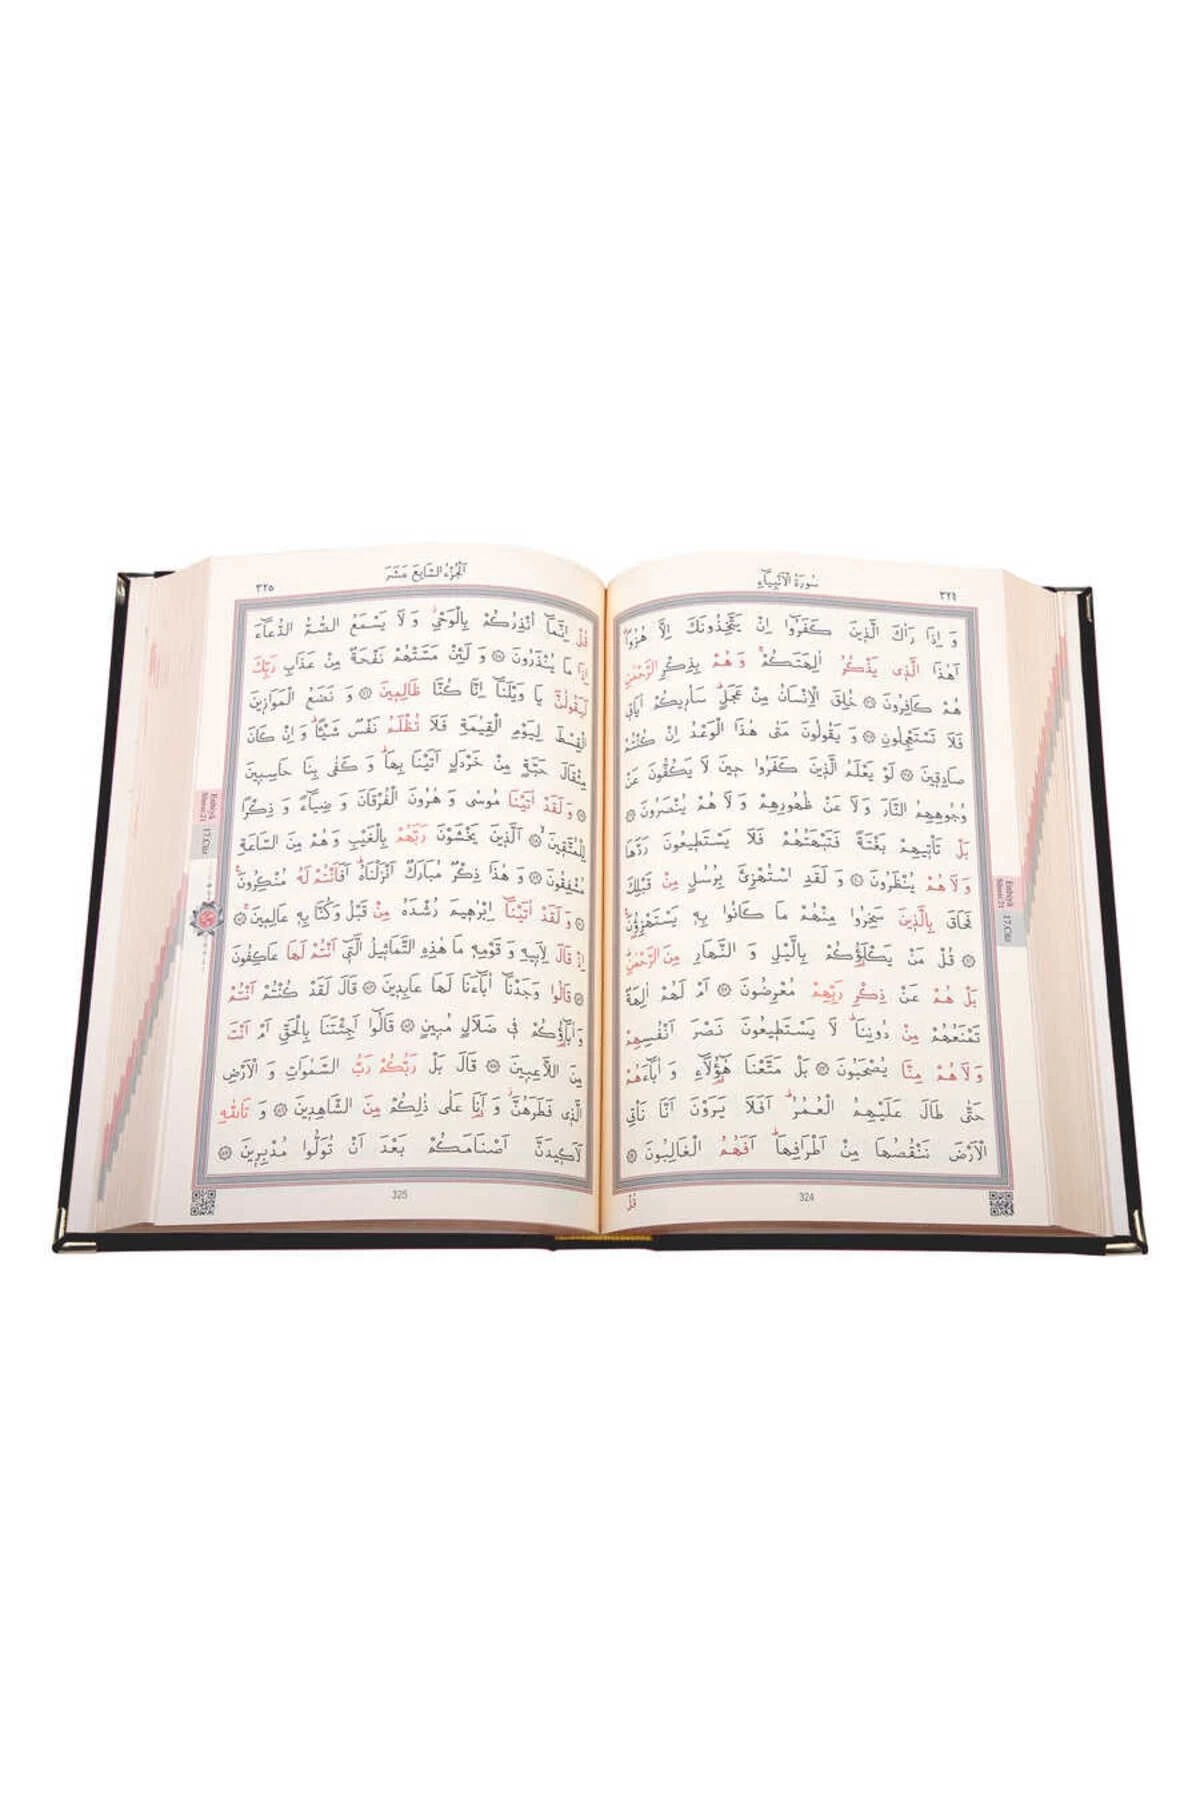 سُورَةُ الْاَنْبِيَاءِ
٣٢٤
وَ اِذَا رَاٰكَ الَّذٖينَ كَفَرُٓوا اِنْ يَتَّخِذُونَكَ اِلَّا هُزُوًا
اَهٰذَا الَّذٖى يَذْكُرُ اٰلِهَتَكُمْ وَ هُمْ بِذِكْرِ الرَّحْمٰنِ
هُمْ كَافِرُونَ خُلِقَ الْاِنْسَانُ مِنْ عَجَلٍ سَاُرٖيكُمْ اٰيَاتٖى
فَلَا تَسْتَعْجِلُونِ وَ يَقُولُونَ مَتٰى هٰذَا الْوَعْدُ اِنْ كُنْتُمْ
صَادِقٖينَ لَوْ يَعْلَمُ الَّذٖينَ كَفَرُوا حٖينَ لَا يَكُفُّونَ عَنْ
وُجُوهِهِمُ النَّارَ وَ لَا عَنْ ظُهُورِهِمْ وَ لَا هُمْ يُنْصَرُونَ
بَلْ تَاْتٖيهِمْ بَغْتَةً فَتَبْهَتُهُمْ فَلَا يَسْتَطٖيعُونَ رَدَّهَا
وَ لَا هُمْ يُنْظَرُونَ وَ لَقَدِ اسْتُهْزِئَ بِرُسُلٍ مِنْ قَبْلِكَ
فَحَاقَ بِالَّذٖينَ سَخِرُوا مِنْهُمْ مَا كَانُوا بِهٖ يَسْتَهْزِؤُنَ
قُلْ مَنْ يَكْلَؤُكُمْ بِالَّيْلِ وَ النَّهَارِ مِنَ الرَّحْمٰنِ
بَلْ هُمْ عَنْ ذِكْرِ رَبِّهِمْ مُعْرِضُونَ اَمْ لَهُمْ اٰلِهَةٌ
تَمْنَعُهُمْ مِنْ دُونِنَا لَا يَسْتَطٖيعُونَ نَصْرَ اَنْفُسِهِمْ
وَ لَا هُمْ مِنَّا يُصْحَبُونَ بَلْ مَتَّعْنَا هٰٓؤُلَاءِ وَ اٰبَاءَهُمْ
حَتّٰى طَالَ عَلَيْهِمُ الْعُمُرُ اَفَلَا يَرَوْنَ اَنَّا نَاْتِى
الْاَرْضَ نَنْقُصُهَا مِنْ اَطْرَافِهَا اَفَهُمُ الْغَالِبُونَ
قُلْ
324
Enbiyâ
Sûresi:21
17.Cüz
اَلْجُزْءُ السَّابِعَ عَشَرَ
٣٢٥
قُلْ اِنَّمَٓا اُنْذِرُكُمْ بِالْوَحْىِ وَ لَا يَسْمَعُ الصُّمُّ الدُّعَٓاءَ
اِذَا مَا يُنْذَرُونَ وَ لَئِنْ مَسَّتْهُمْ نَفْحَةٌ مِنْ عَذَابِ رَبِّكَ
لَيَقُولُنَّ يَا وَيْلَنَٓا اِنَّا كُنَّا ظَالِمٖينَ وَ نَضَعُ الْمَوَازٖينَ
الْقِسْطَ لِيَوْمِ الْقِيٰمَةِ فَلَا تُظْلَمُ نَفْسٌ شَيْئًا وَ اِنْ كَانَ
مِثْقَالَ حَبَّةٍ مِنْ خَرْدَلٍ اَتَيْنَا بِهَا وَ كَفٰى بِنَا حَاسِبٖينَ
وَ لَقَدْ اٰتَيْنَا مُوسٰى وَ هٰرُونَ الْفُرْقَانَ وَ ضِيَٓاءً وَ ذِكْرًا
لِلْمُتَّقٖينَ اَلَّذٖينَ يَخْشَوْنَ رَبَّهُمْ بِالْغَيْبِ وَ هُمْ مِنَ السَّاعَةِ
مُشْفِقُونَ وَ هٰذَا ذِكْرٌ مُبَارَكٌ اَنْزَلْنَاهُ اَفَاَنْتُمْ لَهُ مُنْكِرُونَ
وَ لَقَدْ اٰتَيْنَٓا اِبْرٰهٖيمَ رُشْدَهُ مِنْ قَبْلُ وَ كُنَّا بِهٖ عَالِمٖينَ
اِذْ قَالَ لِاَبٖيهِ وَ قَوْمِهٖ مَا هٰذِهِ التَّمَاثٖيلُ الَّتٖٓى اَنْتُمْ لَهَا عَاكِفُونَ
قَالُوا وَجَدْنَٓا اٰبَٓاءَنَا لَهَا عَابِدٖينَ قَالَ لَقَدْ كُنْتُمْ اَنْتُمْ
وَ اٰبَٓاؤُكُمْ فٖى ضَلَالٍ مُبٖينٍ قَالُٓوا اَجِئْتَنَا بِالْحَقِّ اَمْ اَنْتَ
مِنَ اللَّاعِبٖينَ قَالَ بَلْ رَبُّكُمْ رَبُّ السَّمٰوَاتِ وَ الْاَرْضِ
الَّذٖى فَطَرَهُنَّ وَ اَنَا عَلٰى ذٰلِكُمْ مِنَ الشَّاهِدٖينَ وَ تَاللّٰهِ
لَاَكٖيدَنَّ اَصْنَامَكُمْ بَعْدَ اَنْ تُوَلُّوا مُدْبِرٖينَ
325
Enbiyâ
Sûresi:21
17.Cüz